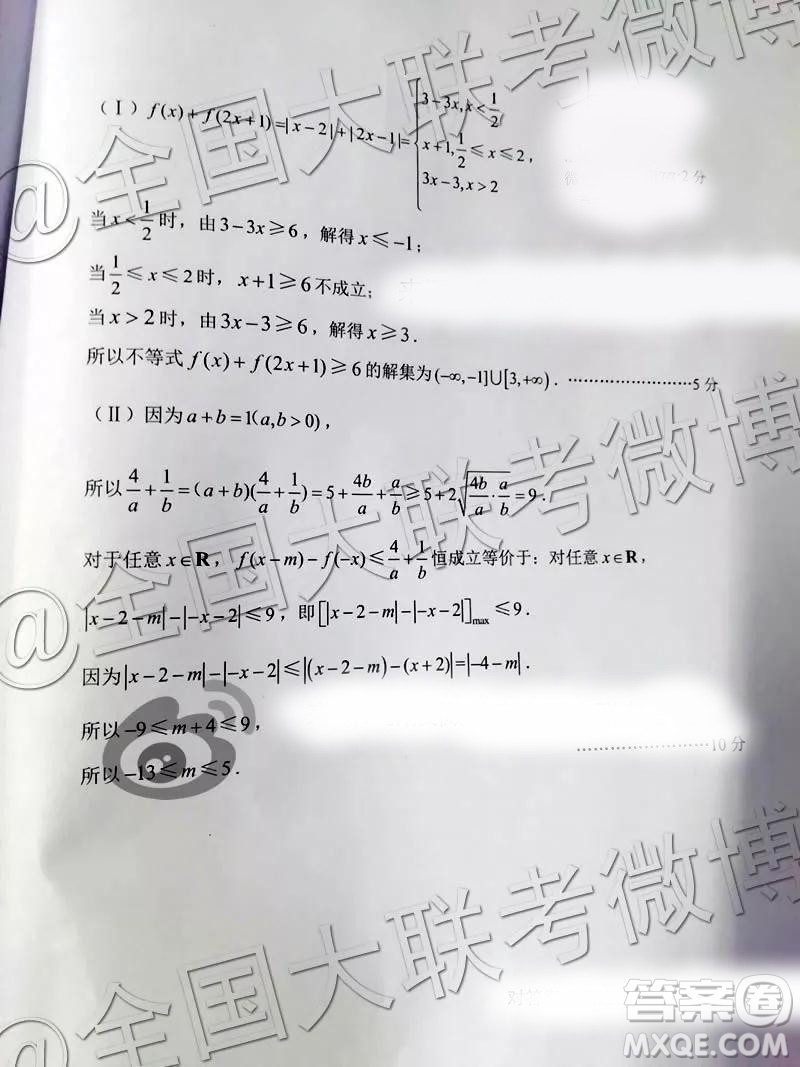 @全国大联考微博
(Ⅰ) f(x)+f(2x+1)=|x-2|+|2x-1|={3-3x,x<1/2
x+1,1/2≤x≤2,
3x-3,x>2
2分
当x<1/2时,由3-3x≥6,解得x≤-1;
当1/2≤x≤2时,x+1≥6不成立;
当x>2时,由3x-3≥6,解得x≥3.
所以不等式f(x)+f(2x+1)≥6的解集为(-∞,-1]∪[3,+∞).························5分
(Ⅱ)因为a+b=1(a,b>0),
所以4/a+1/b=(a+b)(4/a+1/b)=5+4b/a+a/b≥5+2√(4b/a·a/b)=9.
对于任意x∈R,f(x-m)-f(-x)≤4/a+1/b恒成立等价于:对任意x∈R,
|x-2-m|-|-x-2|≤9,即[|x-2-m|-|-x-2|]max≤9.
因为|x-2-m|-|-x-2|≤|(x-2-m)-(x+2)|=|-4-m|.
所以-9≤m+4≤9,
························10分
所以-13≤m≤5.
@全国大联考微博
@全国大联考微博
对答
答案卷
MXQE.COM